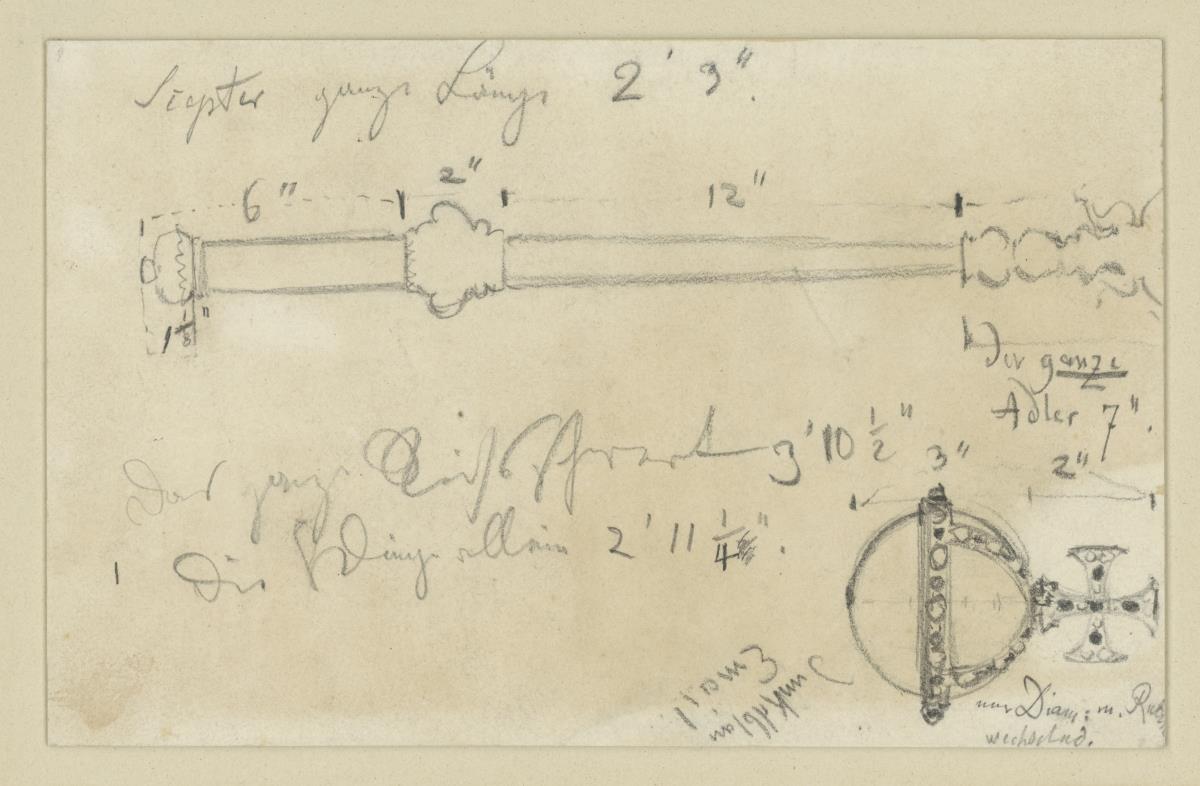 Szepter ganze Länge 2' 3".
6" 2" 12"
1 1/8"
Der ganze
Adler 7".
Das ganze Reichsschwert 3' 10 1/2"
3" 2"
Die Klinge allein 2' 11 1/4".
nur Diam: m. Rub
wechselnd.